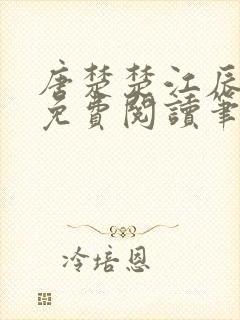 唐楚楚江辰
免費閱讀筆
冷培恩